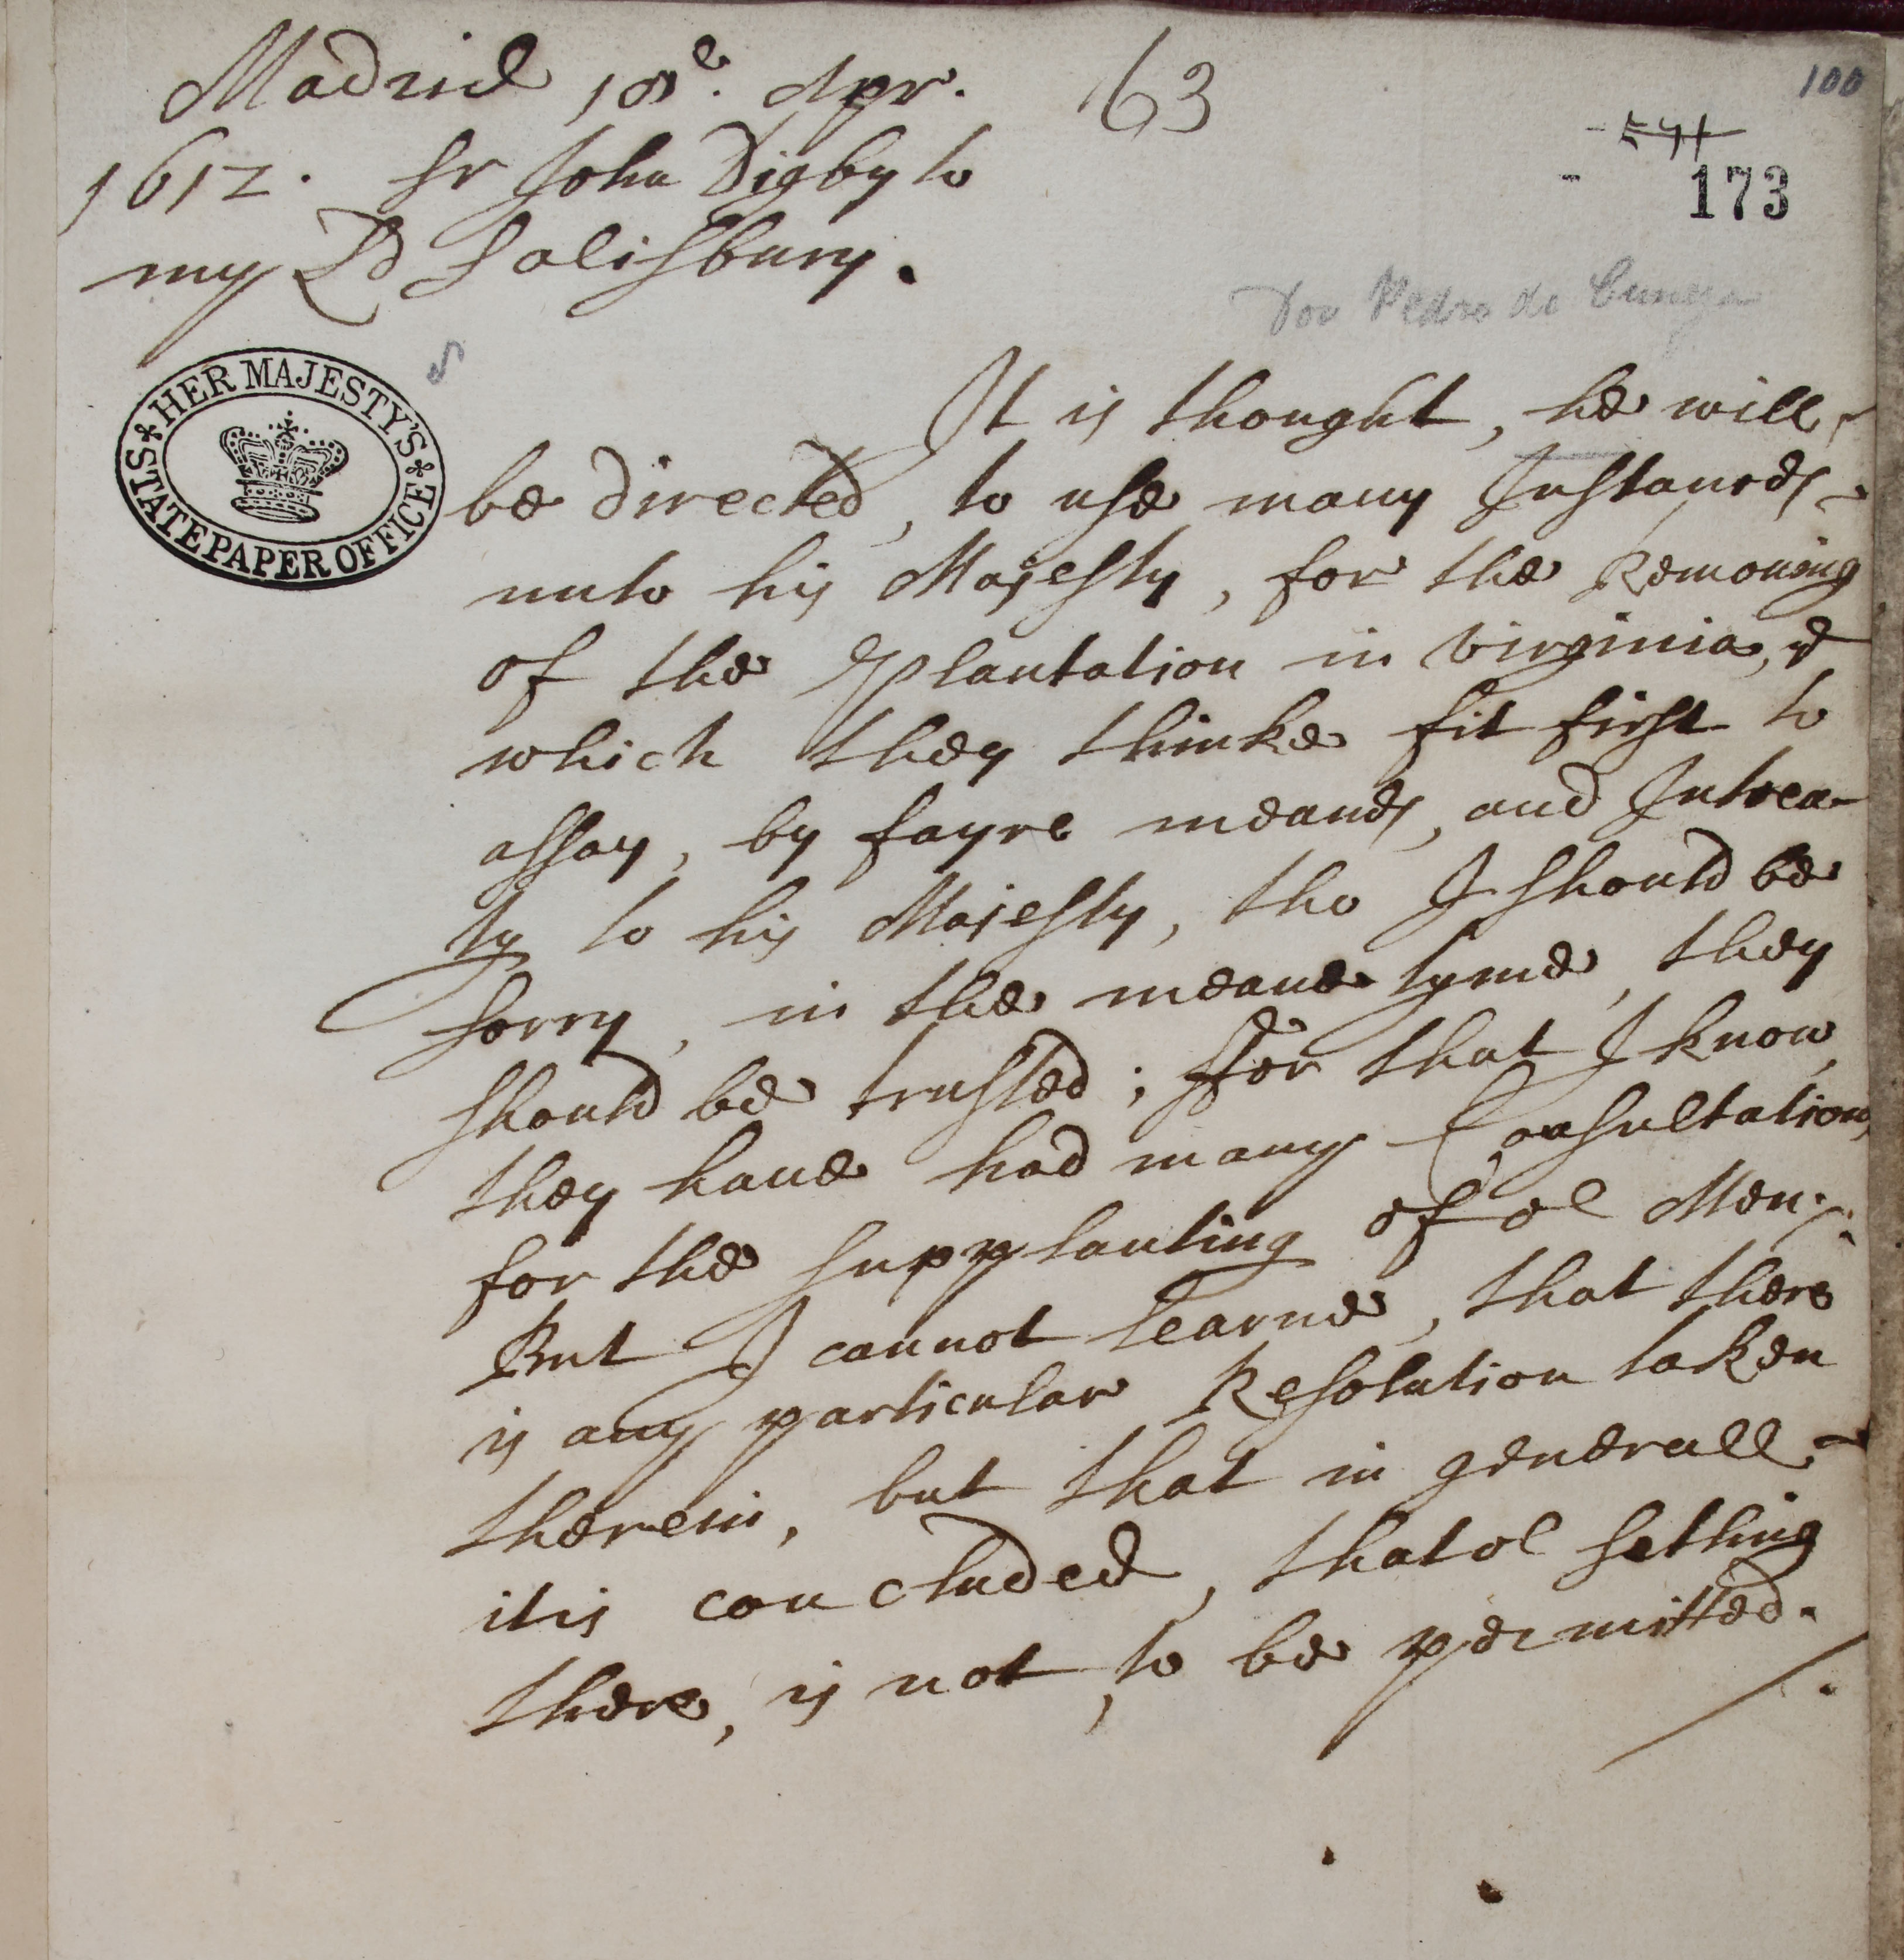 Madrid 18e. Apr.
63
100
1612. Sr John Digby to
my Ld Salisbury.
173
Don Pedro de Cunega
HER MAJESTY'S STATE PAPER OFFICE
It is thought, he will
be directed, to use many Instances
unto his Majesty, for the Remouing
of the Plantation in Virginia, &
which they thinke fit first to
assay, by fayre meanes, and Intrea-
ty to his Majesty, tho I should be
sorry, in the meane tyme, they
should be trusted; ffor that I know,
they haue had many Consultations,
for the supplanting of ol Men.
But I cannot learne, that there
is any particular Resolution taken
therein, but that in generall
it is concluded, that ol setling
there, is not to be permitted.